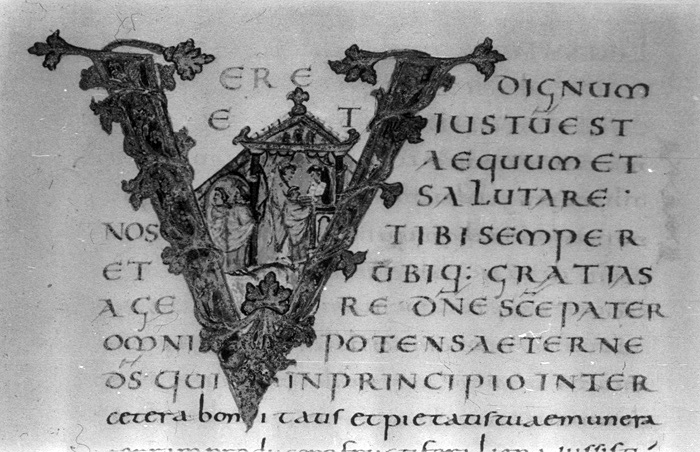 VERE DIGNUM
ET IUSTŪ EST
AEQUUM ET
SALUTARE·
NOS TIBI SEMPER
ET UBIQ: GRATIAS
AGERE DN̄E SC̄E PATER
OMNIPOTENS AETERNE
D̄S QUI IN PRINCIPIO INTER
cetera bonitatis et pietatis tuae munera